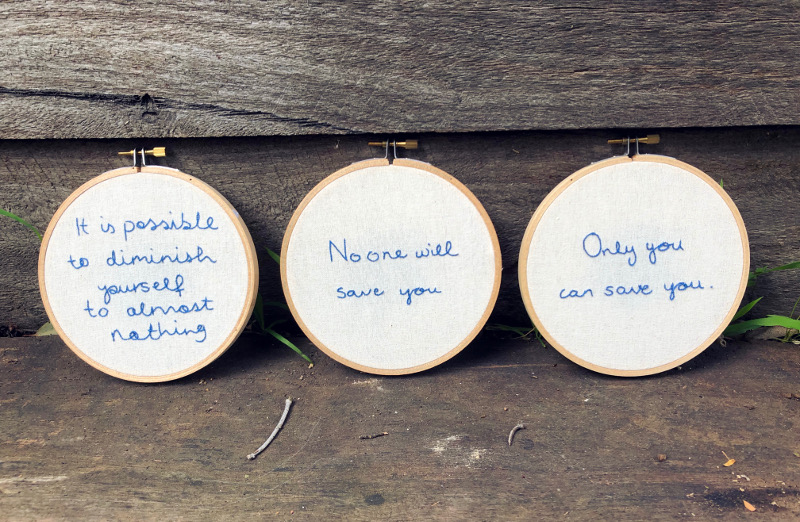 It is possible
to diminish
yourself
to almost
nothing
No one will
save you
Only you
can save you.